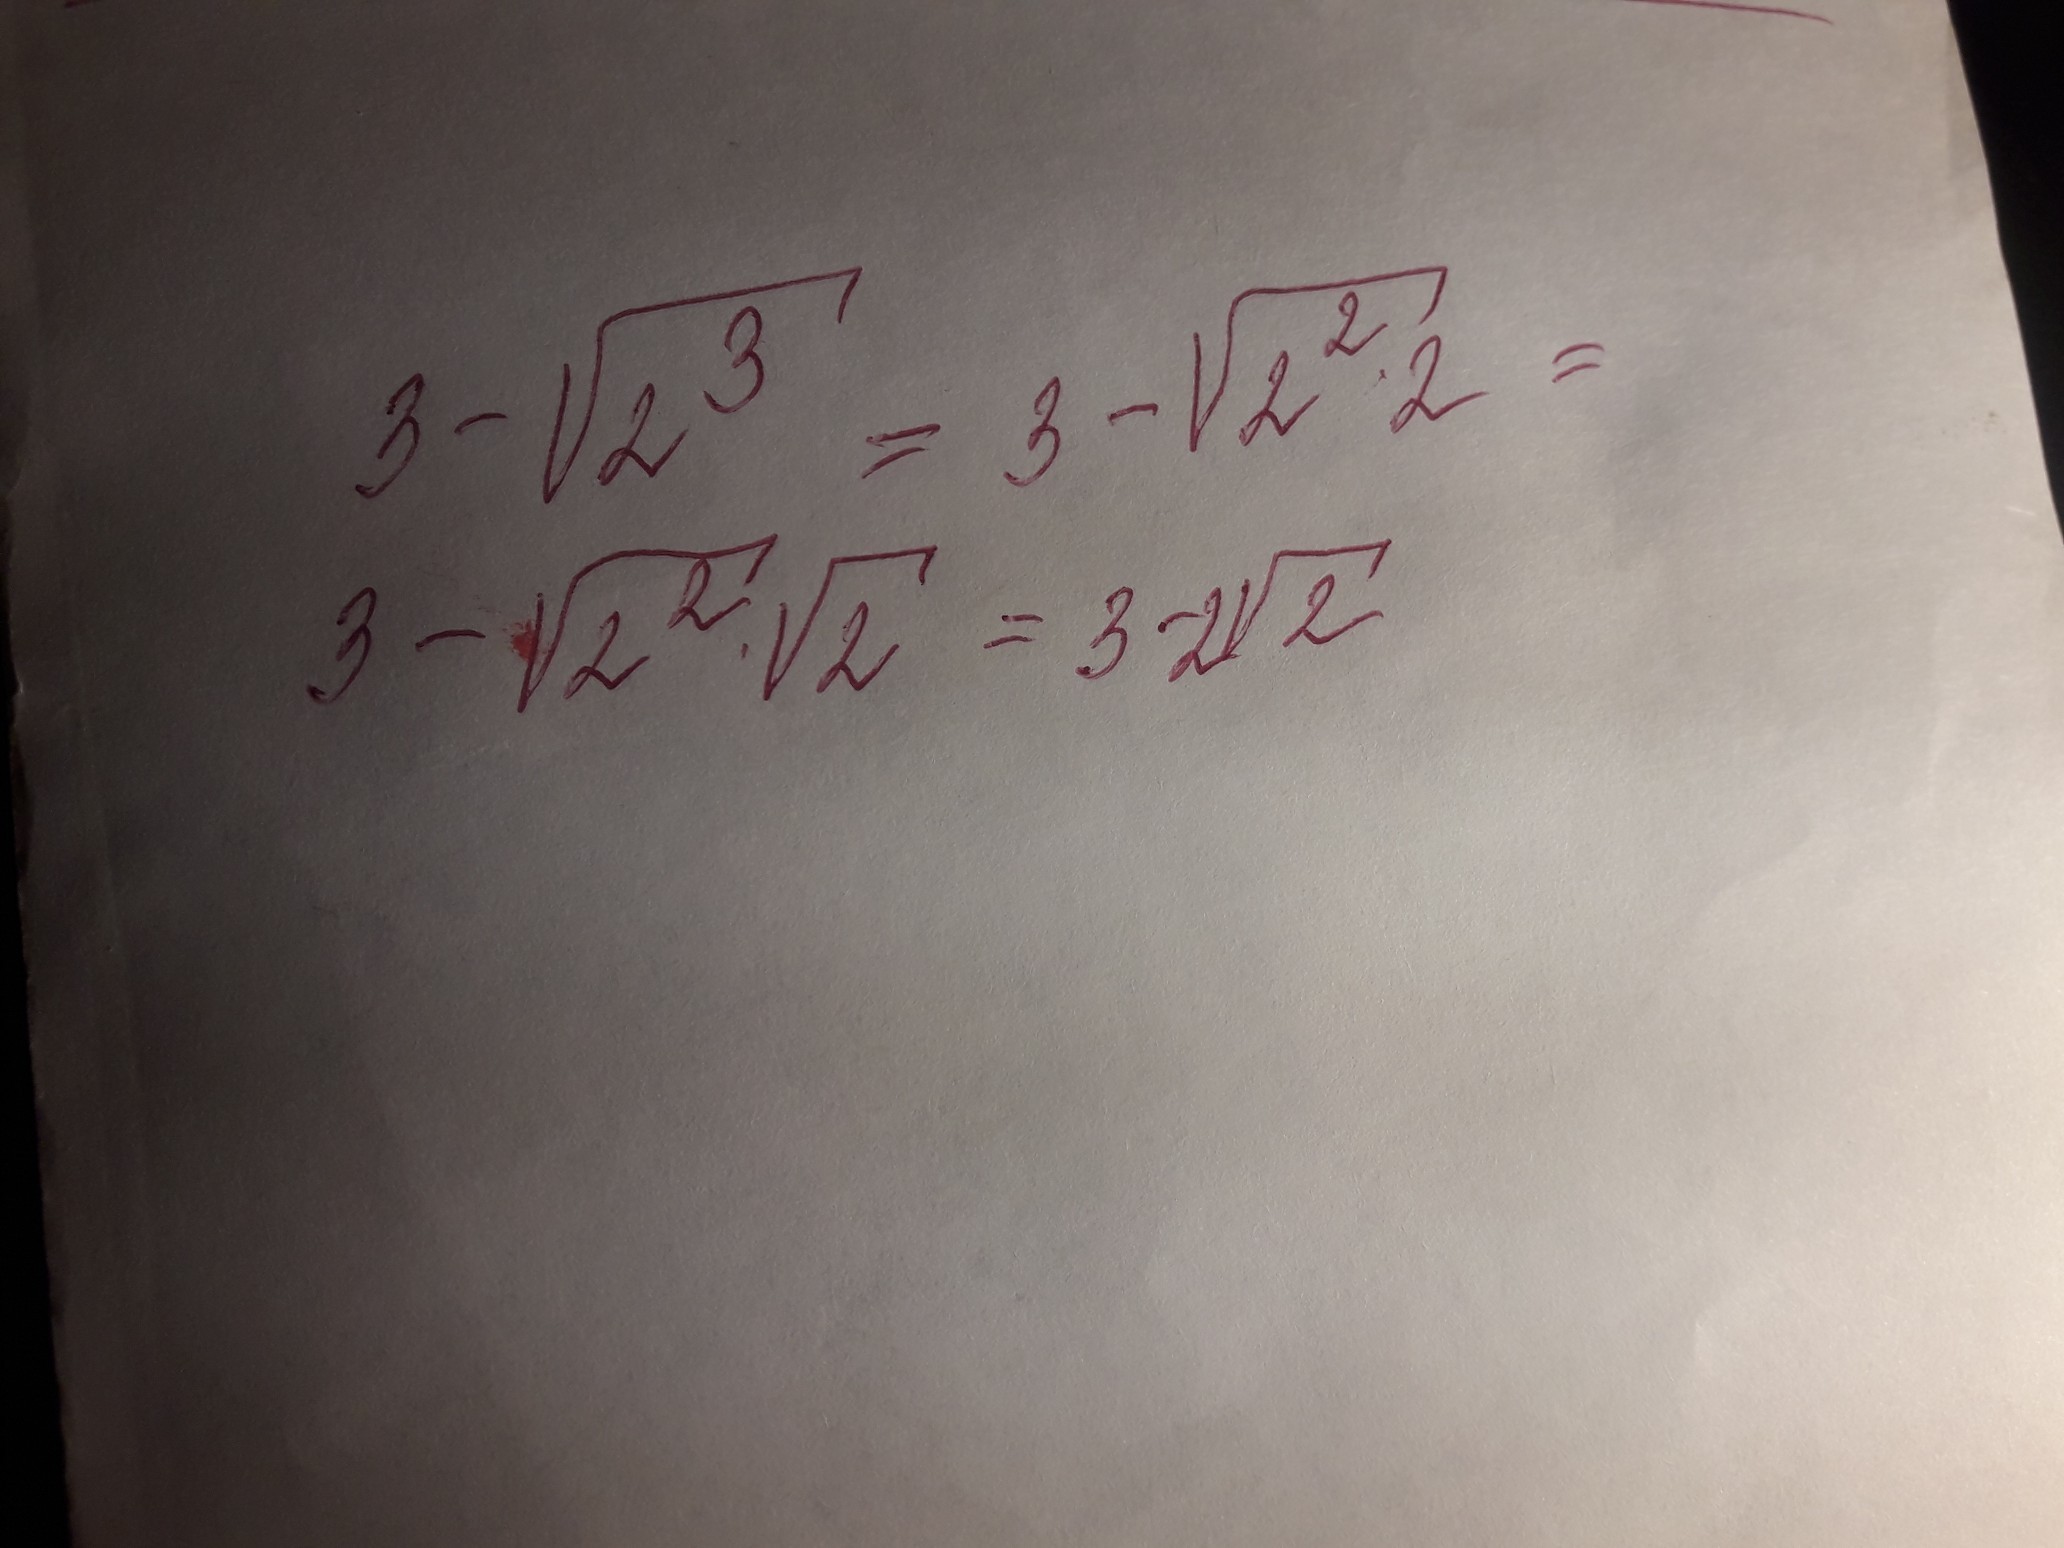 3 - √2³ = 3 - √2²·2 =
3 - √2²·√2 = 3 - 2√2